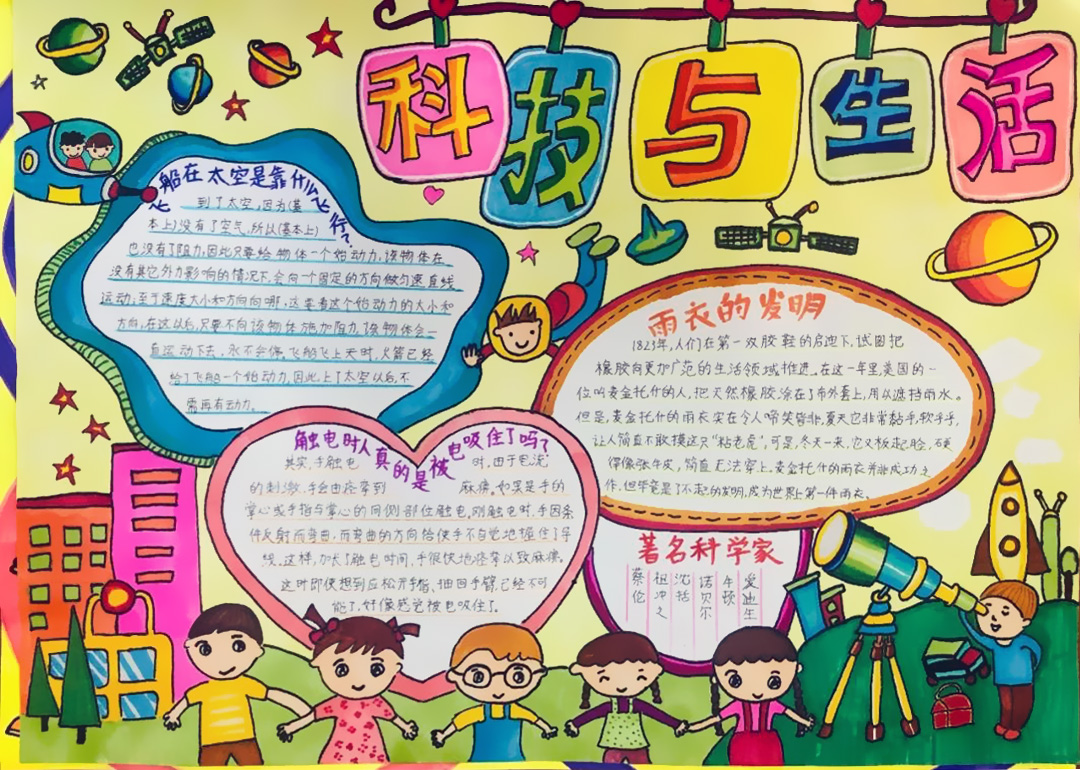 科技与生活
飞船在太空是靠什么飞行?
到了太空,因为(基
本上)没有了空气,所以(基本上)
也没有了阻力,因此只要给物体一个始动力,该物体在
没有其它外力影响的情况下,会向一个固定的方向做匀速直线
运动,至于速度大小和方向向哪,这要看这个始动力的大小和
方向,在这以后,只要不向该物体施加阻力,该物体会一
直运动下去,永不会停。飞船飞上天时,火箭已经
给了飞船一个始动力,因此,上了太空以后,不
需再有动力。
雨衣的发明
1823年,人们在第一双胶鞋的启迪下,试图把
橡胶向更加广范的生活领域推进。在这一年里,英国的一
位叫麦金托什的人,把天然橡胶,涂在了布外套上,用以遮挡雨水。
但是,麦金托什的雨衣实在令人啼笑皆非,夏天它非常黏手,软乎乎,
让人简直不敢摸这只“粘老虎”,可是,冬天一来,它又板起脸,硬
得像张牛皮,简直无法穿上。麦金托什的雨衣并非成功之
作,但毕竟是了不起的发明,成为世界上第一件雨衣。
触电时人真的是被电吸住了吗?
其实,手触电时,由于电流
的刺激,手会由痉挛到麻痹。如果是手的
掌心或手指与掌心的同侧部位触电,刚触电时,手因条
件反射而弯曲,而弯曲的方向恰使手不自觉地握住了导
线。这样,加长了触电时间,手很快地痉挛以致麻痹。
这时即使想到应松开手指、抽回手臂,已经不可
能了,好像感觉被电吸住了。
著名科学家
蔡伦
祖冲之
沈括
诺贝尔
牛顿
爱迪生